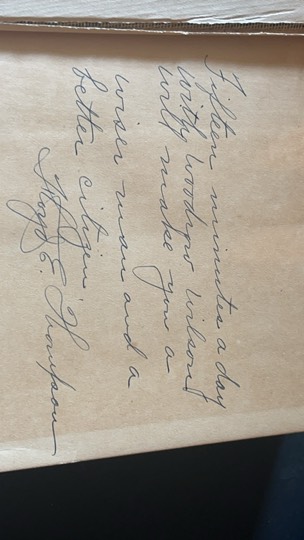 Fifteen minutes a day
with Woodrow Wilson
will make you a
wiser man and a
better citizen.
Lloyd E. Thompson